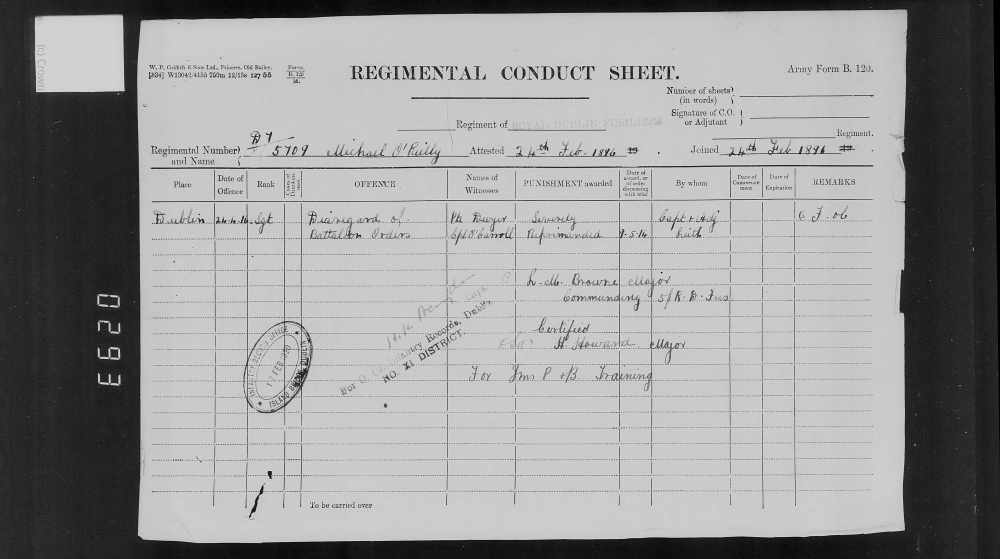 W. P. Griffith & Sons Ltd., Printers, Old Bailey.
Forms
B. 120
REGIMENTAL CONDUCT SHEET.
Army Form B. 120.
Number of sheets
(in words)
Signature of C.O.
or Adjutant
Regiment of ROYAL DUBLIN FUSILIERS
Regiment.
Regimental Number
and Name
5709 Michael O'Reilly
Attested 24th Feb. 1896
Joined 24th Feb 1896
Place
Date of Offence
Rank
OFFENCE
Names of Witnesses
PUNISHMENT awarded
Date of award, or of order dispensing with trial
By whom
Date of Commencement
Date of Expiration
REMARKS
Dublin 24.4.16 Sgt Disregard of Severely Capt & Adj
Battalion Orders Cpl O'Carroll Reprimanded
Browne Major
Commanding 5/R. D. Fus
Certified
H. Howard Major
For P & B Training
Infantry Records, Dublin
NO. XI DISTRICT.
FEB 1920
ISLAND
To be carried over
(c) Crown
0239